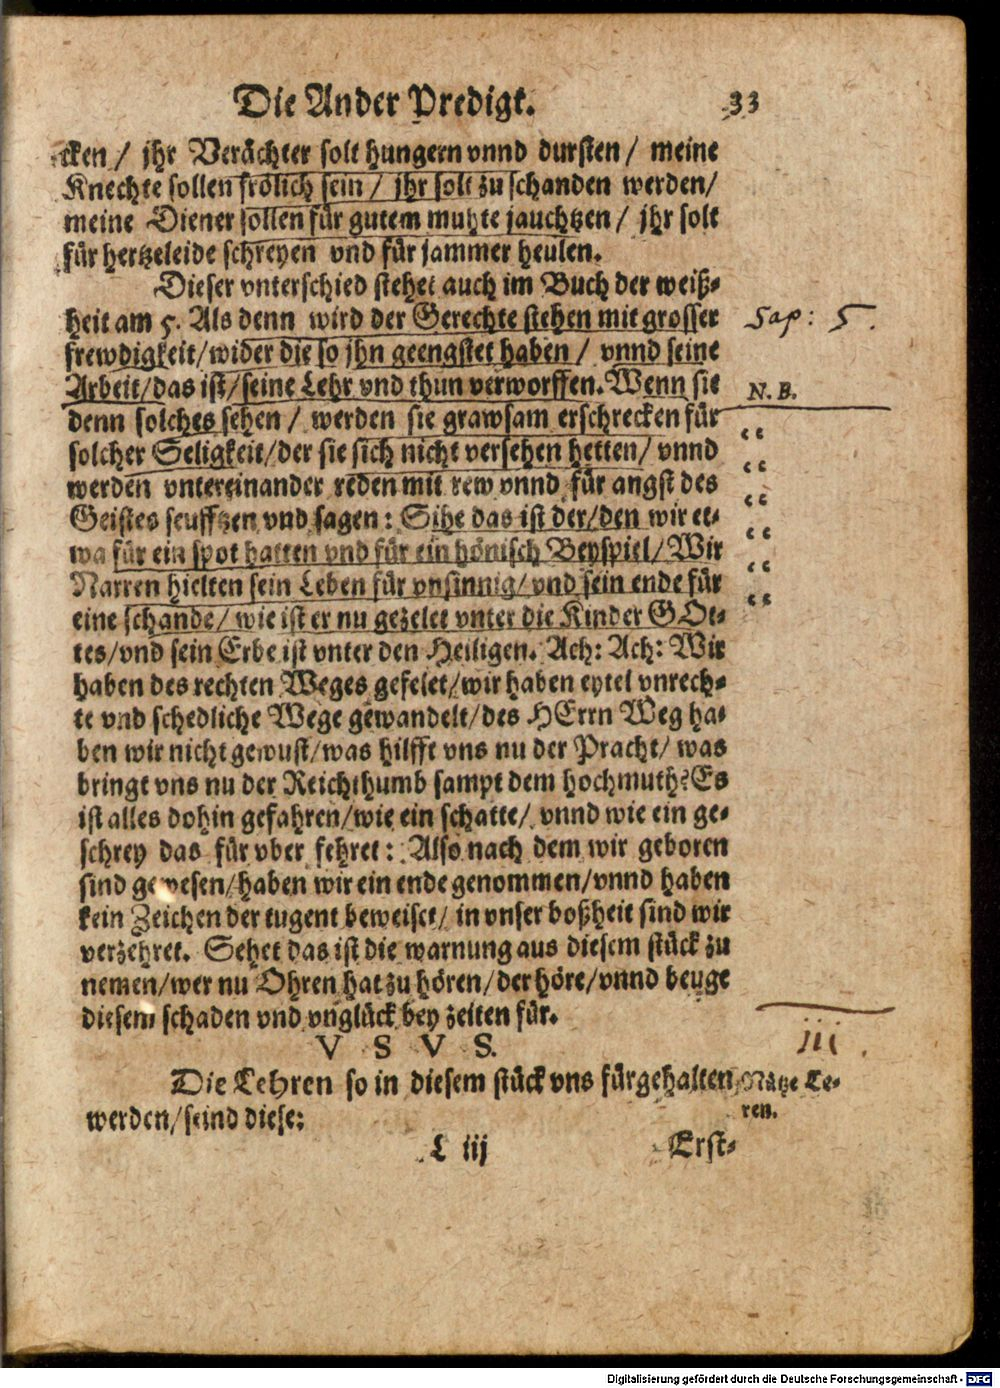 Die Ander Predigt. 33
cken / jhr Verächter solt hungern vnnd dursten / meine
Knechte sollen frölich sein / jhr solt zu schanden werden/
meine Diener sollen für gutem muhte jauchtzen / jhr solt
für hertzeleide schreyen vnd für jammer heulen.
Dieser vnterschied stehet auch im Buch der weiß-
heit am 5. Als denn wird der Gerechte stehen mit grosser
Sap: 5.
frewdigkeit/wider die so jhn geengstet haben / vnnd seine
Arbeit/das ist/seine Lehr vnd thun verworffen. Wenn sie
N. B.
denn solches sehen / werden sie grawsam erschrecken für
solcher Seligkeit/der sie sich nicht versehen hetten/ vnnd
werden vntereinander reden mit rew vnnd für angst des
Geistes seufftzen vnd sagen: Sihe das ist der/den wir et-
wa für ein spot hatten vnd für ein hönisch Beyspiel/ Wir
Narren hielten sein Leben für vnsinnig/ vnd sein ende für
eine schande/ wie ist er nu gezelet vnter die Kinder GOt-
tes/vnd sein Erbe ist vnter den Heiligen. Ach: Ach: Wir
haben des rechten Weges gefelet/wir haben eytel vnrech-
te vnd schedliche Wege gewandelt/des HErrn Weg ha-
ben wir nicht gewust/was hilfft vns nu der Pracht/ was
bringt vns nu der Reichthumb sampt dem hochmuth? Es
ist alles dohin gefahren/wie ein schatte/ vnnd wie ein ge-
schrey das für vber fehret: Also nach dem wir geboren
sind gewesen/haben wir ein ende genommen/vnnd haben
kein Zeichen der tugent beweiset/ in vnser boßheit sind wir
verzehret. Sehet das ist die warnung aus diesem stück zu
nemen/wer nu Ohren hat zu hören/der höre/vnnd beuge
diesem schaden vnd vnglück bey zeiten für.
V S V S.
iii.
Die Lehren so in diesem stück vns fürgehalten
Nütze Le-
ren.
werden/seind diese:
L iij Erst-
Digitalisierung gefördert durch die Deutsche Forschungsgemeinschaft - DFG